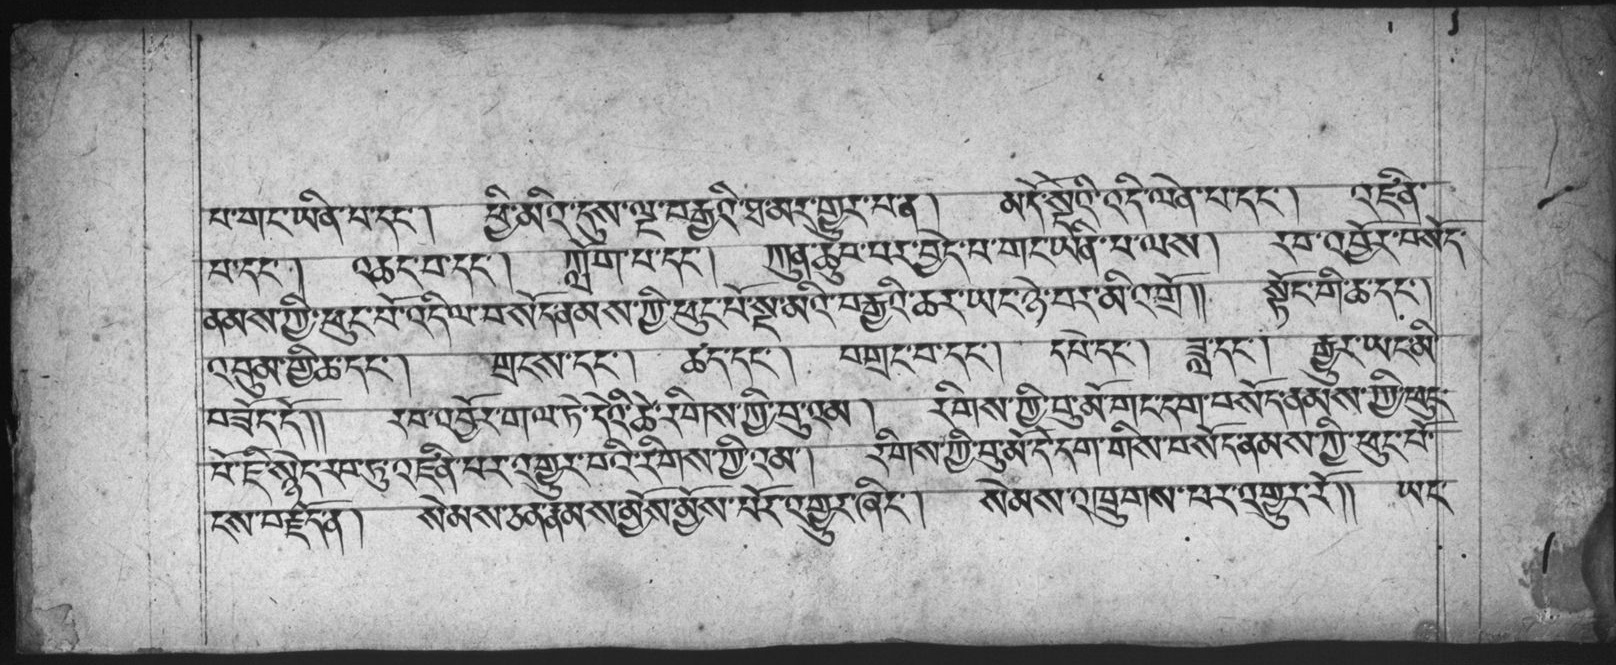 པ་གང་ཡིན་པ་དང་།  ཕྱི་མའི་དུས་ལྔ་བརྒྱའི་ཐ་མར་གྱུར་པ་ན།  མདོ་སྡེའི་འདི་ལེན་པ་དང་།  འཛིན་
པ་དང་།  འཆང་བ་དང་།  ཀློག་པ་དང་།  ཀུན་ཆུབ་པར་བྱེད་པ་གང་ཡིན་པ་ལས།  རབ་འབྱོར་བསོད་
ནམས་ཀྱི་ཕུང་པོ་འདི་ལ་བསོད་ནམས་ཀྱི་ཕུང་པོ་སྔ་མའི་བརྒྱའི་ཆར་ཡང་ཉེ་བར་མི་འགྲོ།།  སྟོང་གི་ཆ་དང་།
འབུམ་གྱི་ཆ་དང་།  གྲངས་དང་།  ཆ་དང་།  བགྲང་བ་དང་།  དཔེ་དང་།  ཟླ་དང་།  རྒྱུར་ཡང་མི་
བཟོད་དོ།།  རབ་འབྱོར་གལ་ཏེ་དེའི་ཚེ་རིགས་ཀྱི་བུ་འམ།  རིགས་ཀྱི་བུ་མོ་གང་དག་བསོད་ནམས་ཀྱི་ཕུང་
པོ་ཇི་སྙེད་རབ་ཏུ་འཛིན་པར་འགྱུར་བའི་རིགས་ཀྱི་འམ།  རིགས་ཀྱི་བུ་མོ་དེ་དག་གིས་བསོད་ནམས་ཀྱི་ཕུང་པོ་
ངས་བརྗོད་ན།  སེམས་ཅན་རྣམས་མྱོས་མྱོས་པོར་འགྱུར་ཞིང་།  སེམས་འཁྲུགས་པར་འགྱུར་རོ།།  ཡང་